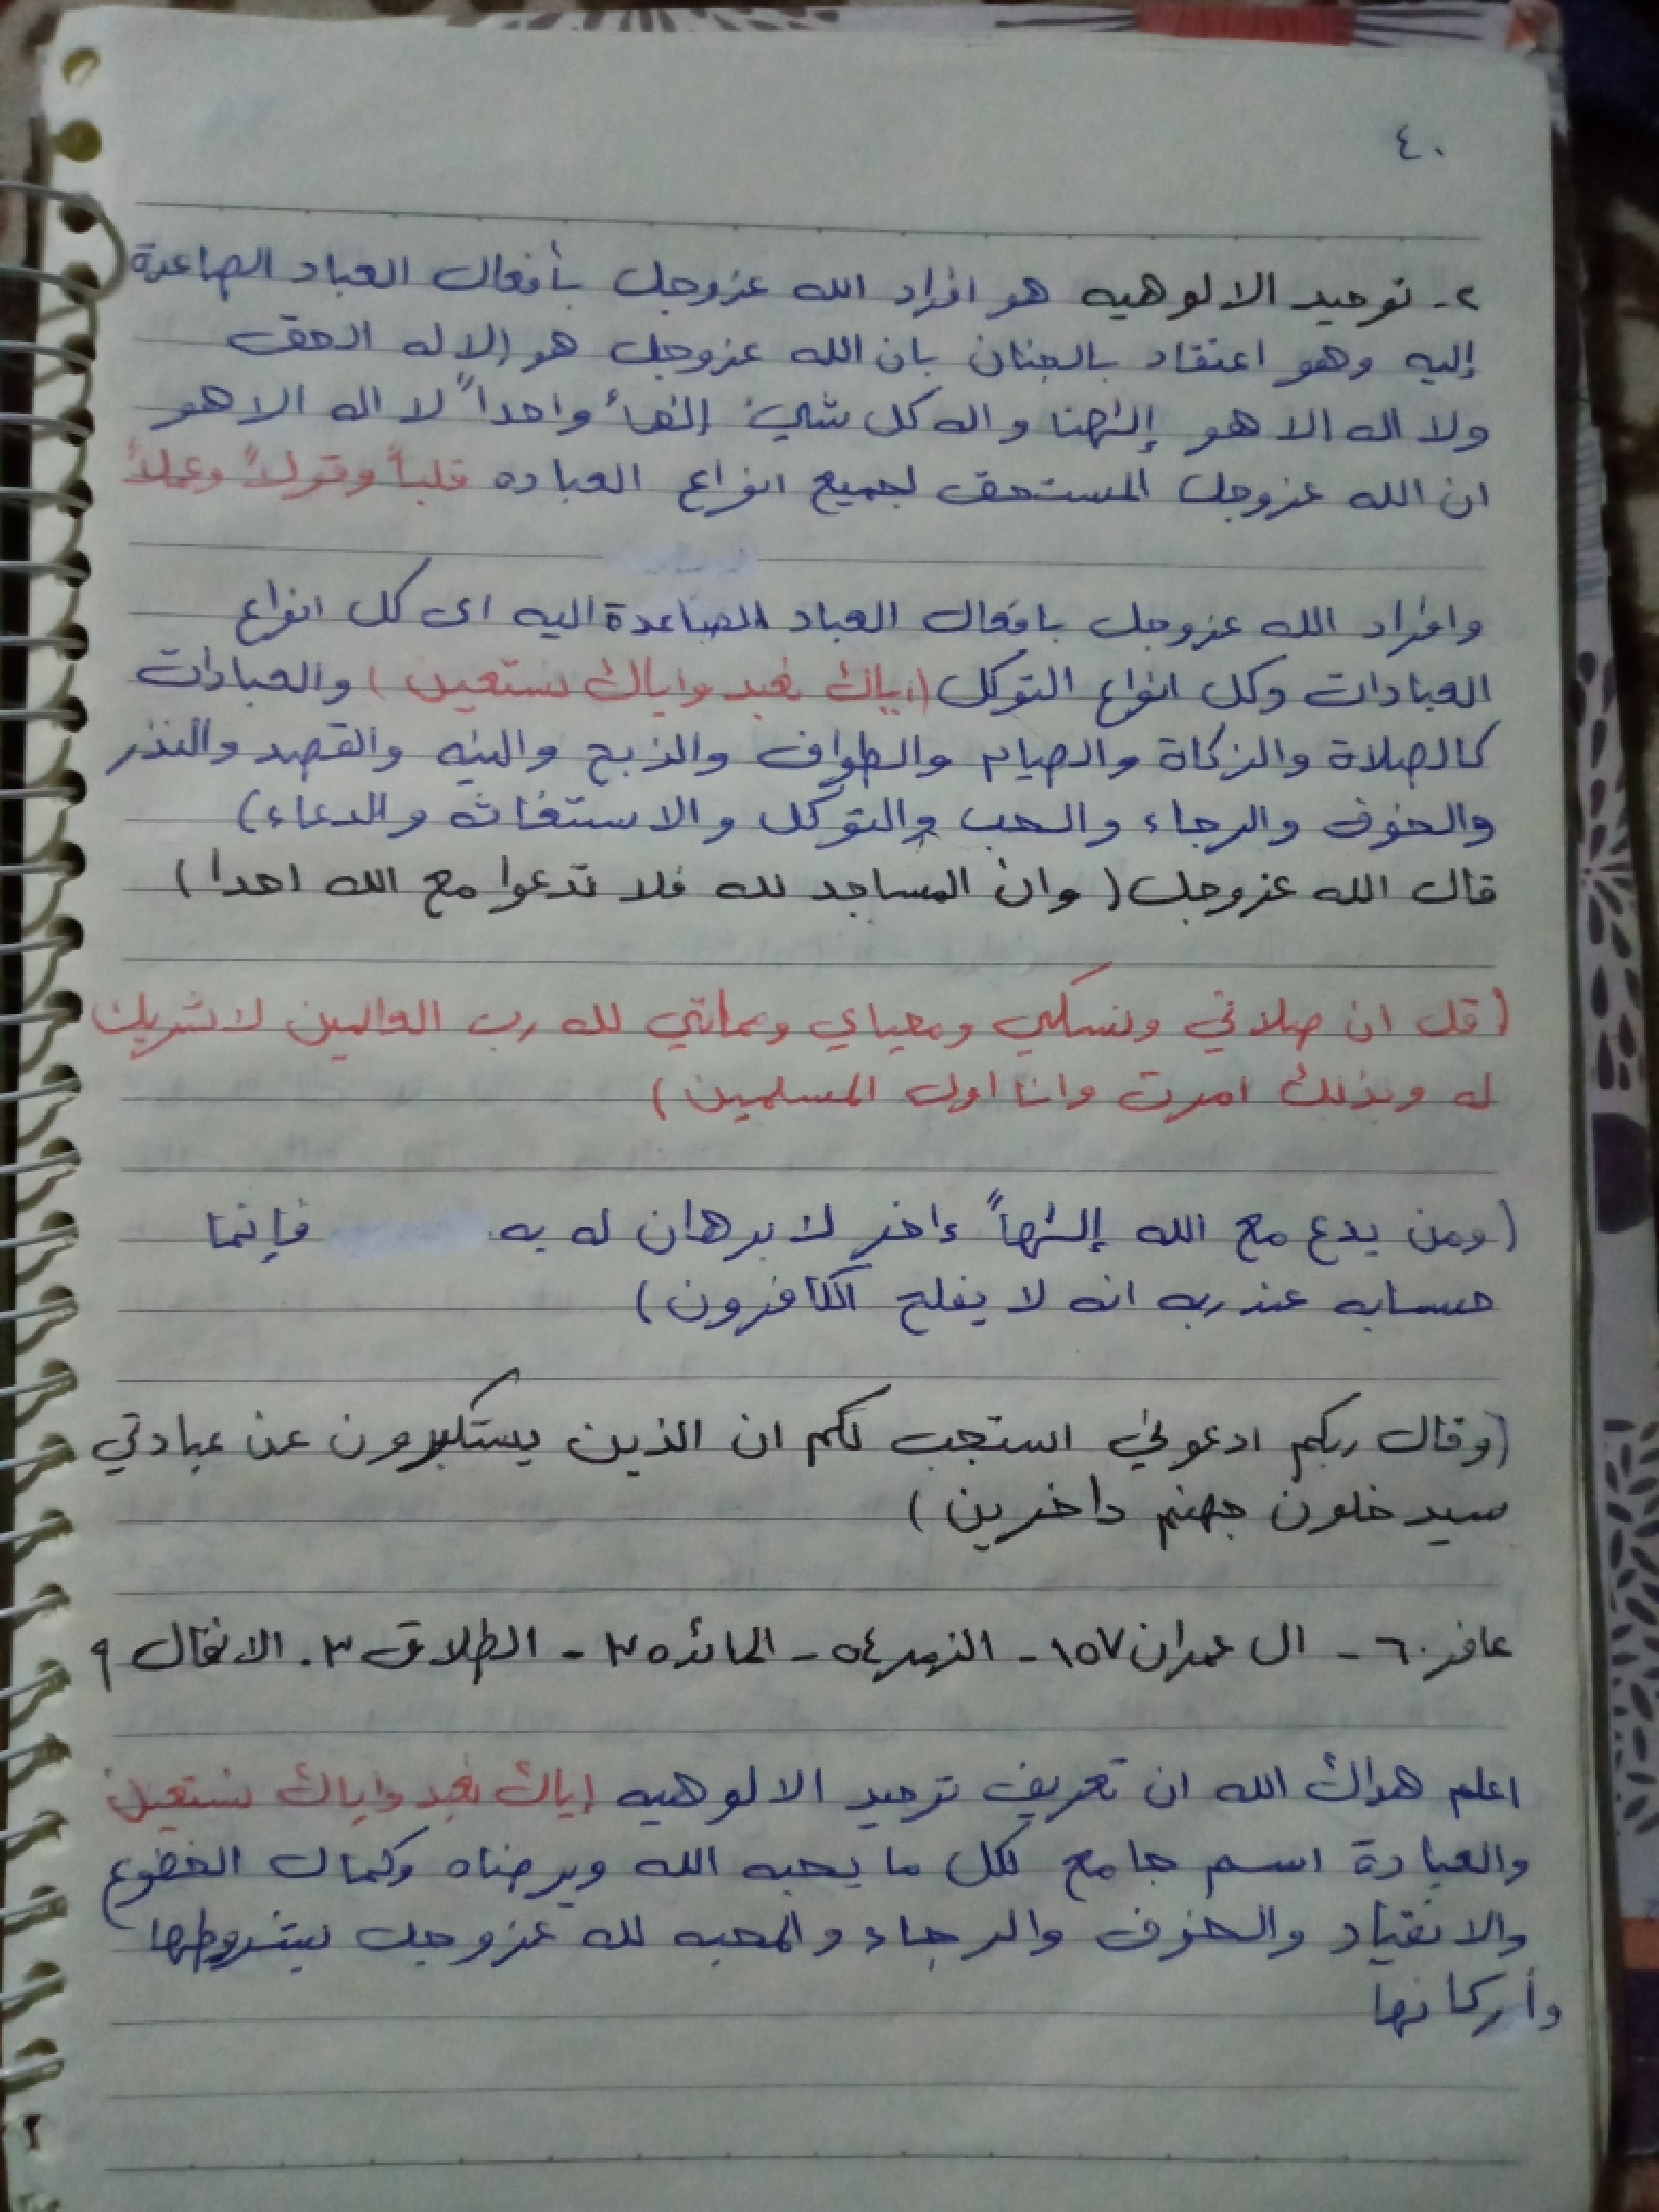 ٤٠
٢- توحيد الالوهيه هو افراد الله عزوجل بأفعال العباد الصاعدة
إليه وهو اعتقاد بالجنان بان الله عزوجل هو الاله الحق
ولا اله الا هو إلهنا واله كل شيئ إلهاً واحداً لا اله الا هو
ان الله عزوجل المستحق لجميع انواع العباده قلباً وقولاً وعملاً
وافراد الله عزوجل بافعال العباد الصاعدة اليه اى كل انواع
العبادات وكل انواع التوكل (اياك نعبد واياك نستعين) والعبادات
كالصلاة والزكاة والصيام والطواف والذبح والنيه والقصد والنذر
والخوف والرجاء والحب والتوكل والاستغاثه والدعاء)
قال الله عزوجل (وان المساجد لله فلا تدعوا مع الله احدا)
(قل ان صلاتي ونسكي ومحياي ومماتي لله رب العالمين لاشريك
له وبذلك امرت وانا اول المسلمين)
(ومن يدع مع الله إلٰهاً ءاخر لا برهان له به فإنما
حسابه عند ربه انه لا يفلح الكافرون)
(وقال ربكم ادعوني استجب لكم ان الذين يستكبرون عن عبادتي
سيدخلون جهنم داخرين)
غافر ٦٠ - ال عمران ١٥٧ - الزمر ٥٤ - المائده ٣ - الطلاق ٣. الانفال ٩
اعلم هداك الله ان تعريف توحيد الالوهيه إياك نعبد واياك نستعين
والعبادة اسم جامع لكل ما يحبه الله ويرضاه وكمال الخضوع
والانقياد والخوف والرجاء والمحبه لله عزوجل بشروطها
وأركانها